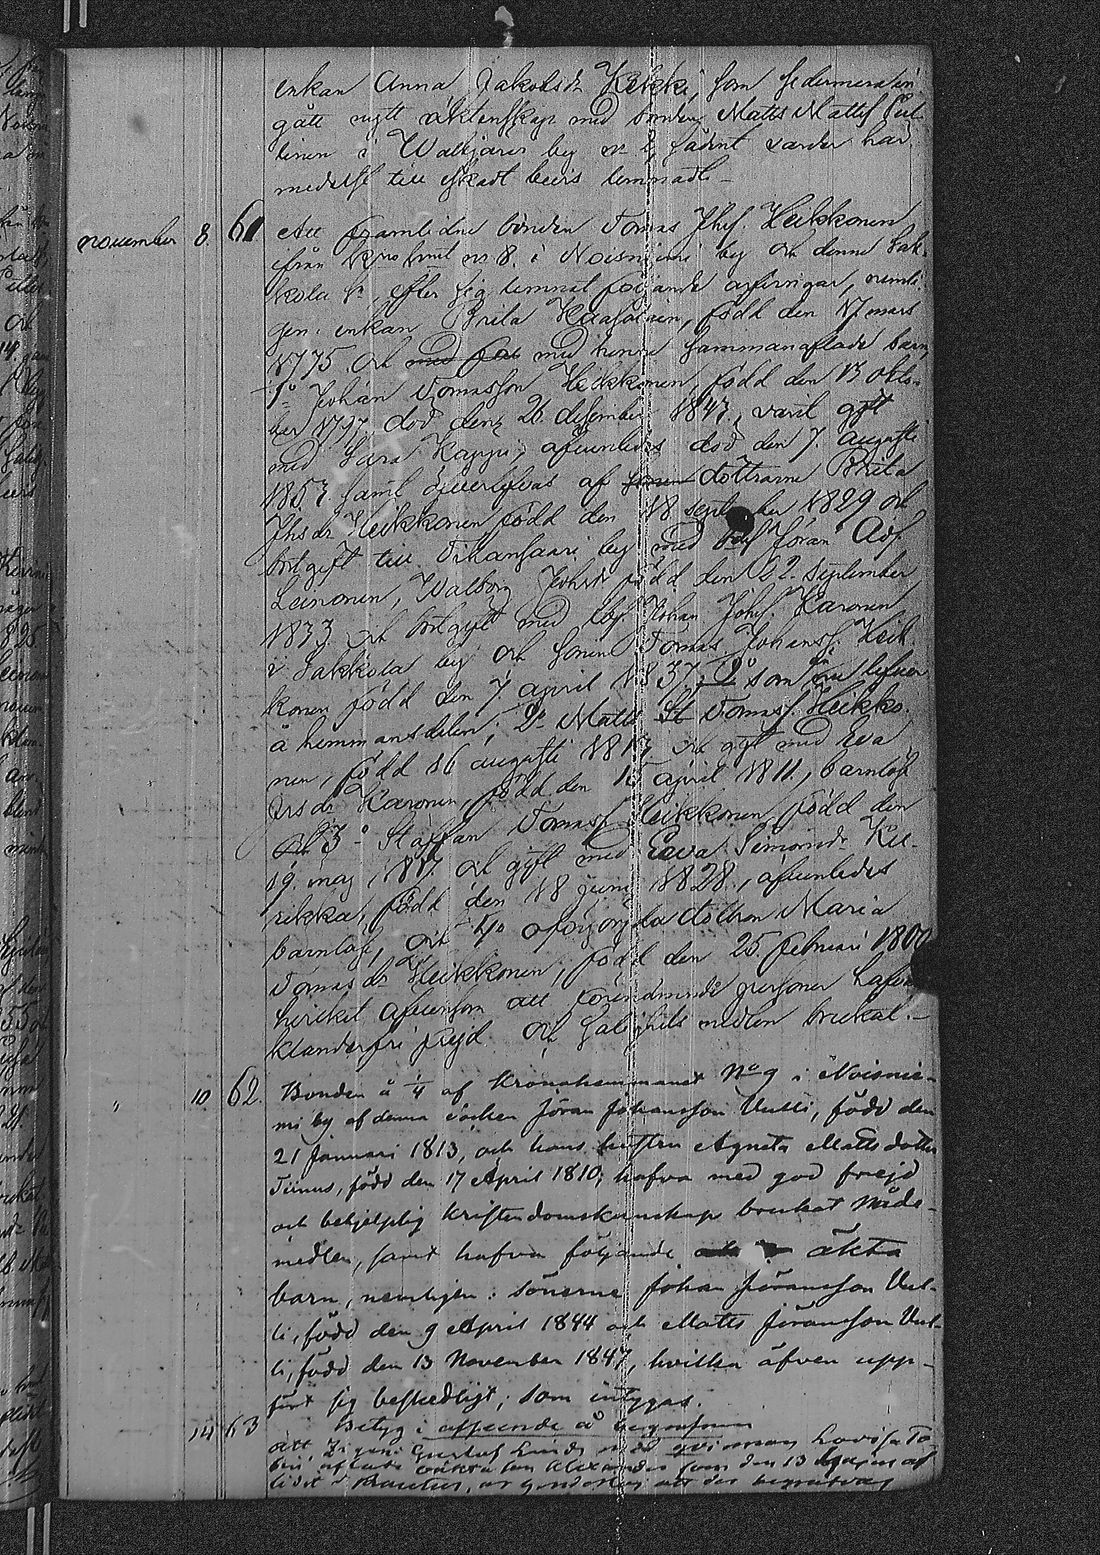 enkan Anna Jakobsdr Kekki, som sedermera in
gått nytt äktenskap med bonden Matts Mattsf
linen i Walkjärvi by № 2, sådant varder här
medelst till eskadt bevis lemnadt.—
november 8. 61 Att framlidne bonden Tomas Jhsf. Heikkonen
från Krono hmt № 8. i Noisniemi by och denne Sak-
kola Sn, efter sig lemnat följande arfvingar, nemli-
gen: enkan Brita Haapalain, född den 17 mars
1775. och med henne sammanaflade barn,
1o Johan Tomasson Heikkonen, född den 13 okto-
ber 1797, död den 26. desember 1847, varit gift
med Sara Kappi, afvenledes död den 7. augusti
1857. samt öfverlefvas af döttrarne Brita
Jhsdr Heikkonen född den 18 september 1829 och
bortgift till Vihansaari by med Jöran Adf.
Leinonen, Walborg Johsdr född den 22. september
1833. och bortgift med Johan Johsf. Karonen
i Sakkola by och sonen Tomas Johansf. Heik-
konen född den 7. april 1837, som lefver
å hemmansdelen; 2o Matts Tomasf. Heikko-
nen, född 16 augusti 1813, och gift med Eva
Karonen, född den 15 april 1811, barnlös
och 3o Staffan Tomasf. Heikkonen, född den
19. maj 1817. och gift med Eeva Simonsdr Ku-
rikka, född den 18 juni 1828., afvenledes
barnlös, och 4o dottren Maria
Tomasdr Heikkonen, född den 25. februari 1800
hvilket afvensom att förenämnde personer hafva
klanderfri frejd och salighets medlen brukat.—
" 10. 62. Bonden å 1/4 af Kronohemmanet No 9 i Noisnie-
mi by af denna socken Jöran Johansson Uutti, född den
21 Januari 1813, och hans hustru Agneta Matts dotter
Tiinus, född den 17 April 1810, hafva med god frejd
och behjelplig kristendomskunskap brukat Nåde-
medlen, samt hafva följande äkta
barn, nemligen: sönerne Johan Jöransson Uut-
ti, född den 9 April 1844 och Matts Jöransson Uut-
ti, född den 13 November 1847, hvilka äfven upp-
fört sig beskedligt; som intygas.
14 63 Betyg i afseende å begrafven
att Gustaf Lund med qvinnan Lovisa
aflade oäkta son Alexander som den 13
lidit i Rautus, att der begrafvas